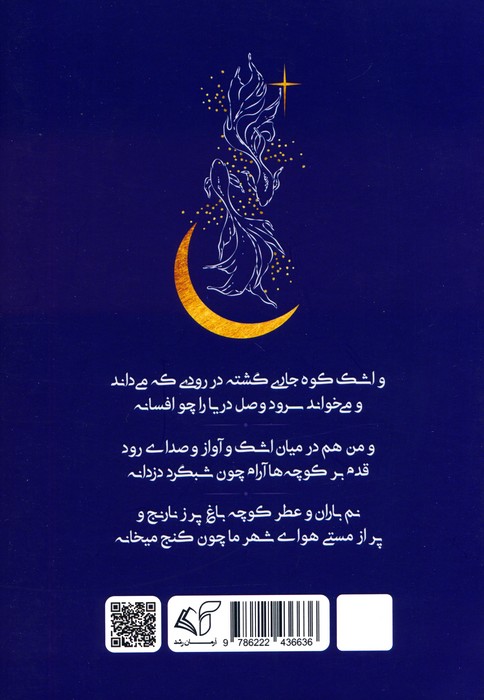 و اشک کوه جاری گشته در رودی که می‌داند
و می‌خواند سرود وصل دریا را چو افسانه
و من هم در میان اشک و آواز و صدای رود
قدم بر کوچه‌ها آرام چون شبگرد دزدانه
نم باران و عطر کوچه باغ پر ز نارنج و
پر از مستی هوای شهر ما چون کنج میخانه
آرمان رشد
9 786222 436636